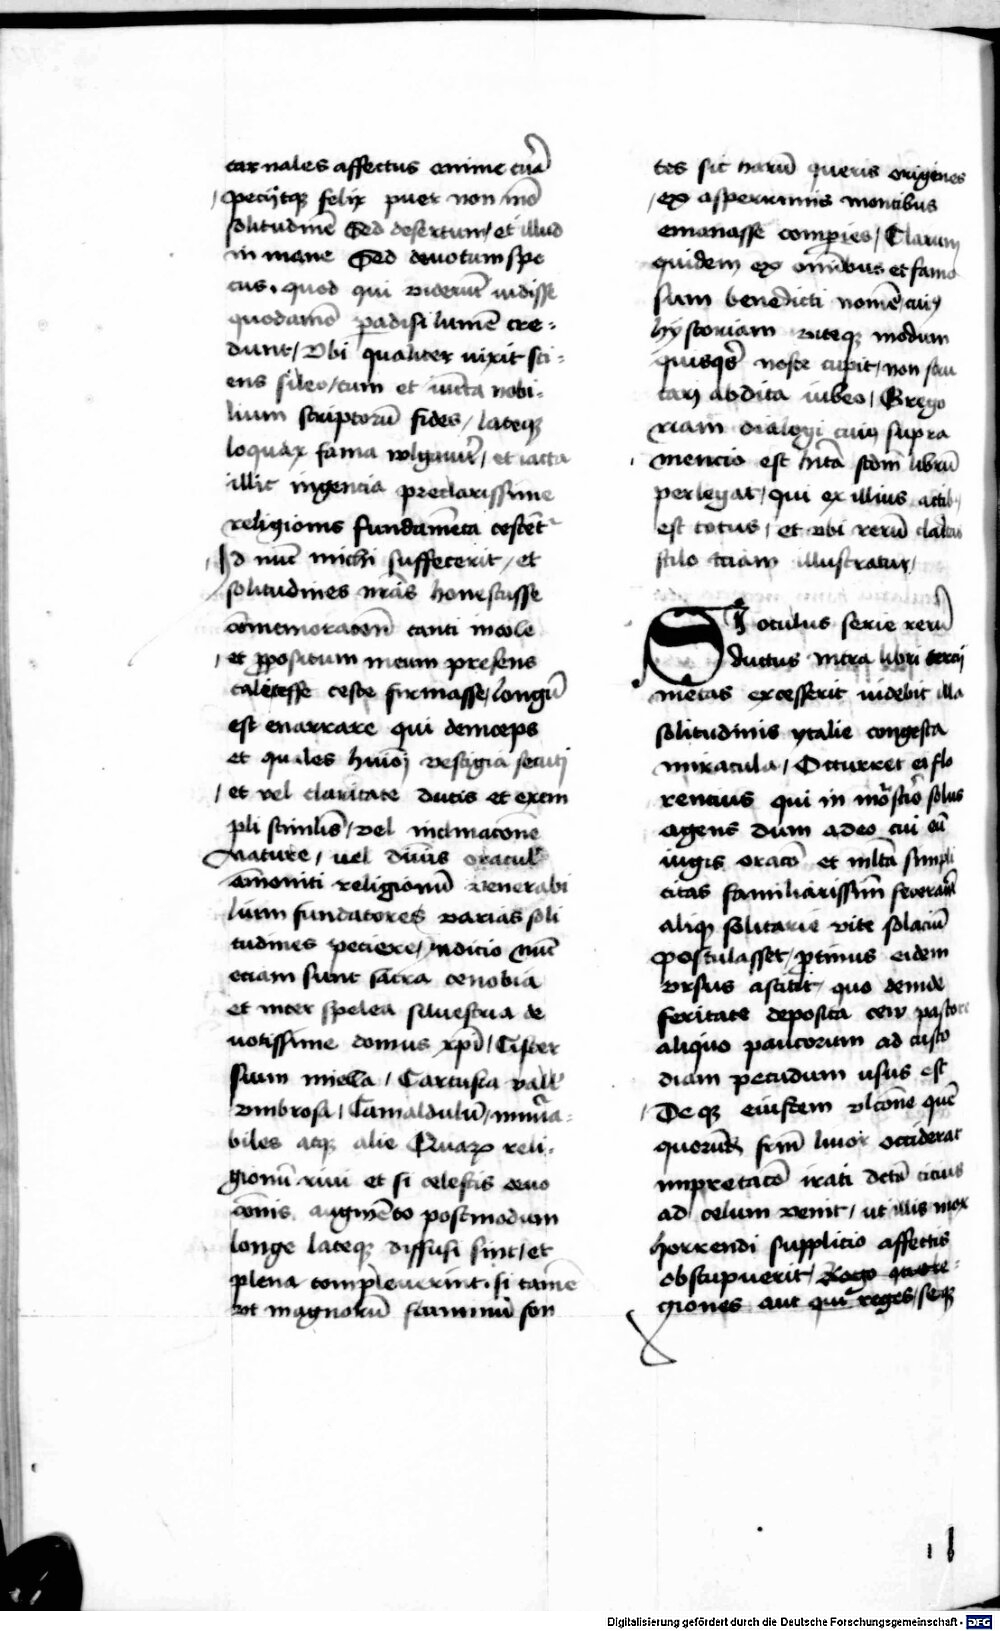 carnales affectus omine cura
peciitque felix puer non modo
solitudinē Sed desertum / et illud
inmane Sed deuotum spe
cus . quod qui viderūt vidisse
quodāmō paradisi lumē cre-
dunt / Vbi qualiter vixit sci-
ens sileo / cum et iūcta nobi-
lium scriptorū fides / lateque
loquax fama / et iacta
illic ingencia preclarissime
religionis fundamēta
Id nūc michi suffecerit / et
solitudines nr̄as honestasse
cōmemoracōem tanti incole
et propositum meum presens
firmasse / longū
est enarrare qui deinceps
et quales huiꝯ vestigia secuti
et vel claritate ducis et exem
pli stimulis / vel inclinacōne
nature / vel diuīs
amoniti religionū venerabi
lium fundatores varias soli
tudines peciere / indicio nūc
eciam sunt sacra cenobia
et inter spelea siluestria de
uotissime domus xpī / Cister
sium / Cartusia vall'
vmbrosa / Camaldulū / inmūa-
biles atque alie Quarꝝ reli-
gionū riui et si celestis euo
ōnis augmēto postmodum
longe lateque diffusi sint / et
plena compleuerint . si tamē
vt magnorū fluminū fon
tes sic harū queris origines
ex asperrimis montibus
emanasse comperies / Clarum
quidem ex ōmibus et famo
sum benedicti nomē / cuiꝯ
hystoriam viteque modum
quisquis nosse cupit / non scru
tari abdita iubeo / Grego
riani dialogi cuiꝯ supra
mencio est scdm̄ librū
perlegat / qui ex illius actib
est totus / et vbi rerū claritas
stilo illustratur /
Si oculus serie rerū
ductus intra libri tercij
mētas excesserit videbit illa
solitudinis ytalie congesta
miracula / Occurret ei flo
rencius qui in solus
agens dum adeo cui eū
iugis oracō et mlta simpli
citas familiarissim̄ fecerant
aliquod solitarie vite solaciū
postulasset / protinus eidem
vrsus astitit / quo deinde
feritate deposita ceu pastore
aliquo paucorum ad custo
diam pecudum vsus est
Deque eiusdem vlcōne quē
quorūd livor occiderat
inprecacō irati citius
ad celum venit / ut illis mox
horrendi supplicio affectis
obstupuerit / Rogo que re-
giones aut qui reges / seque